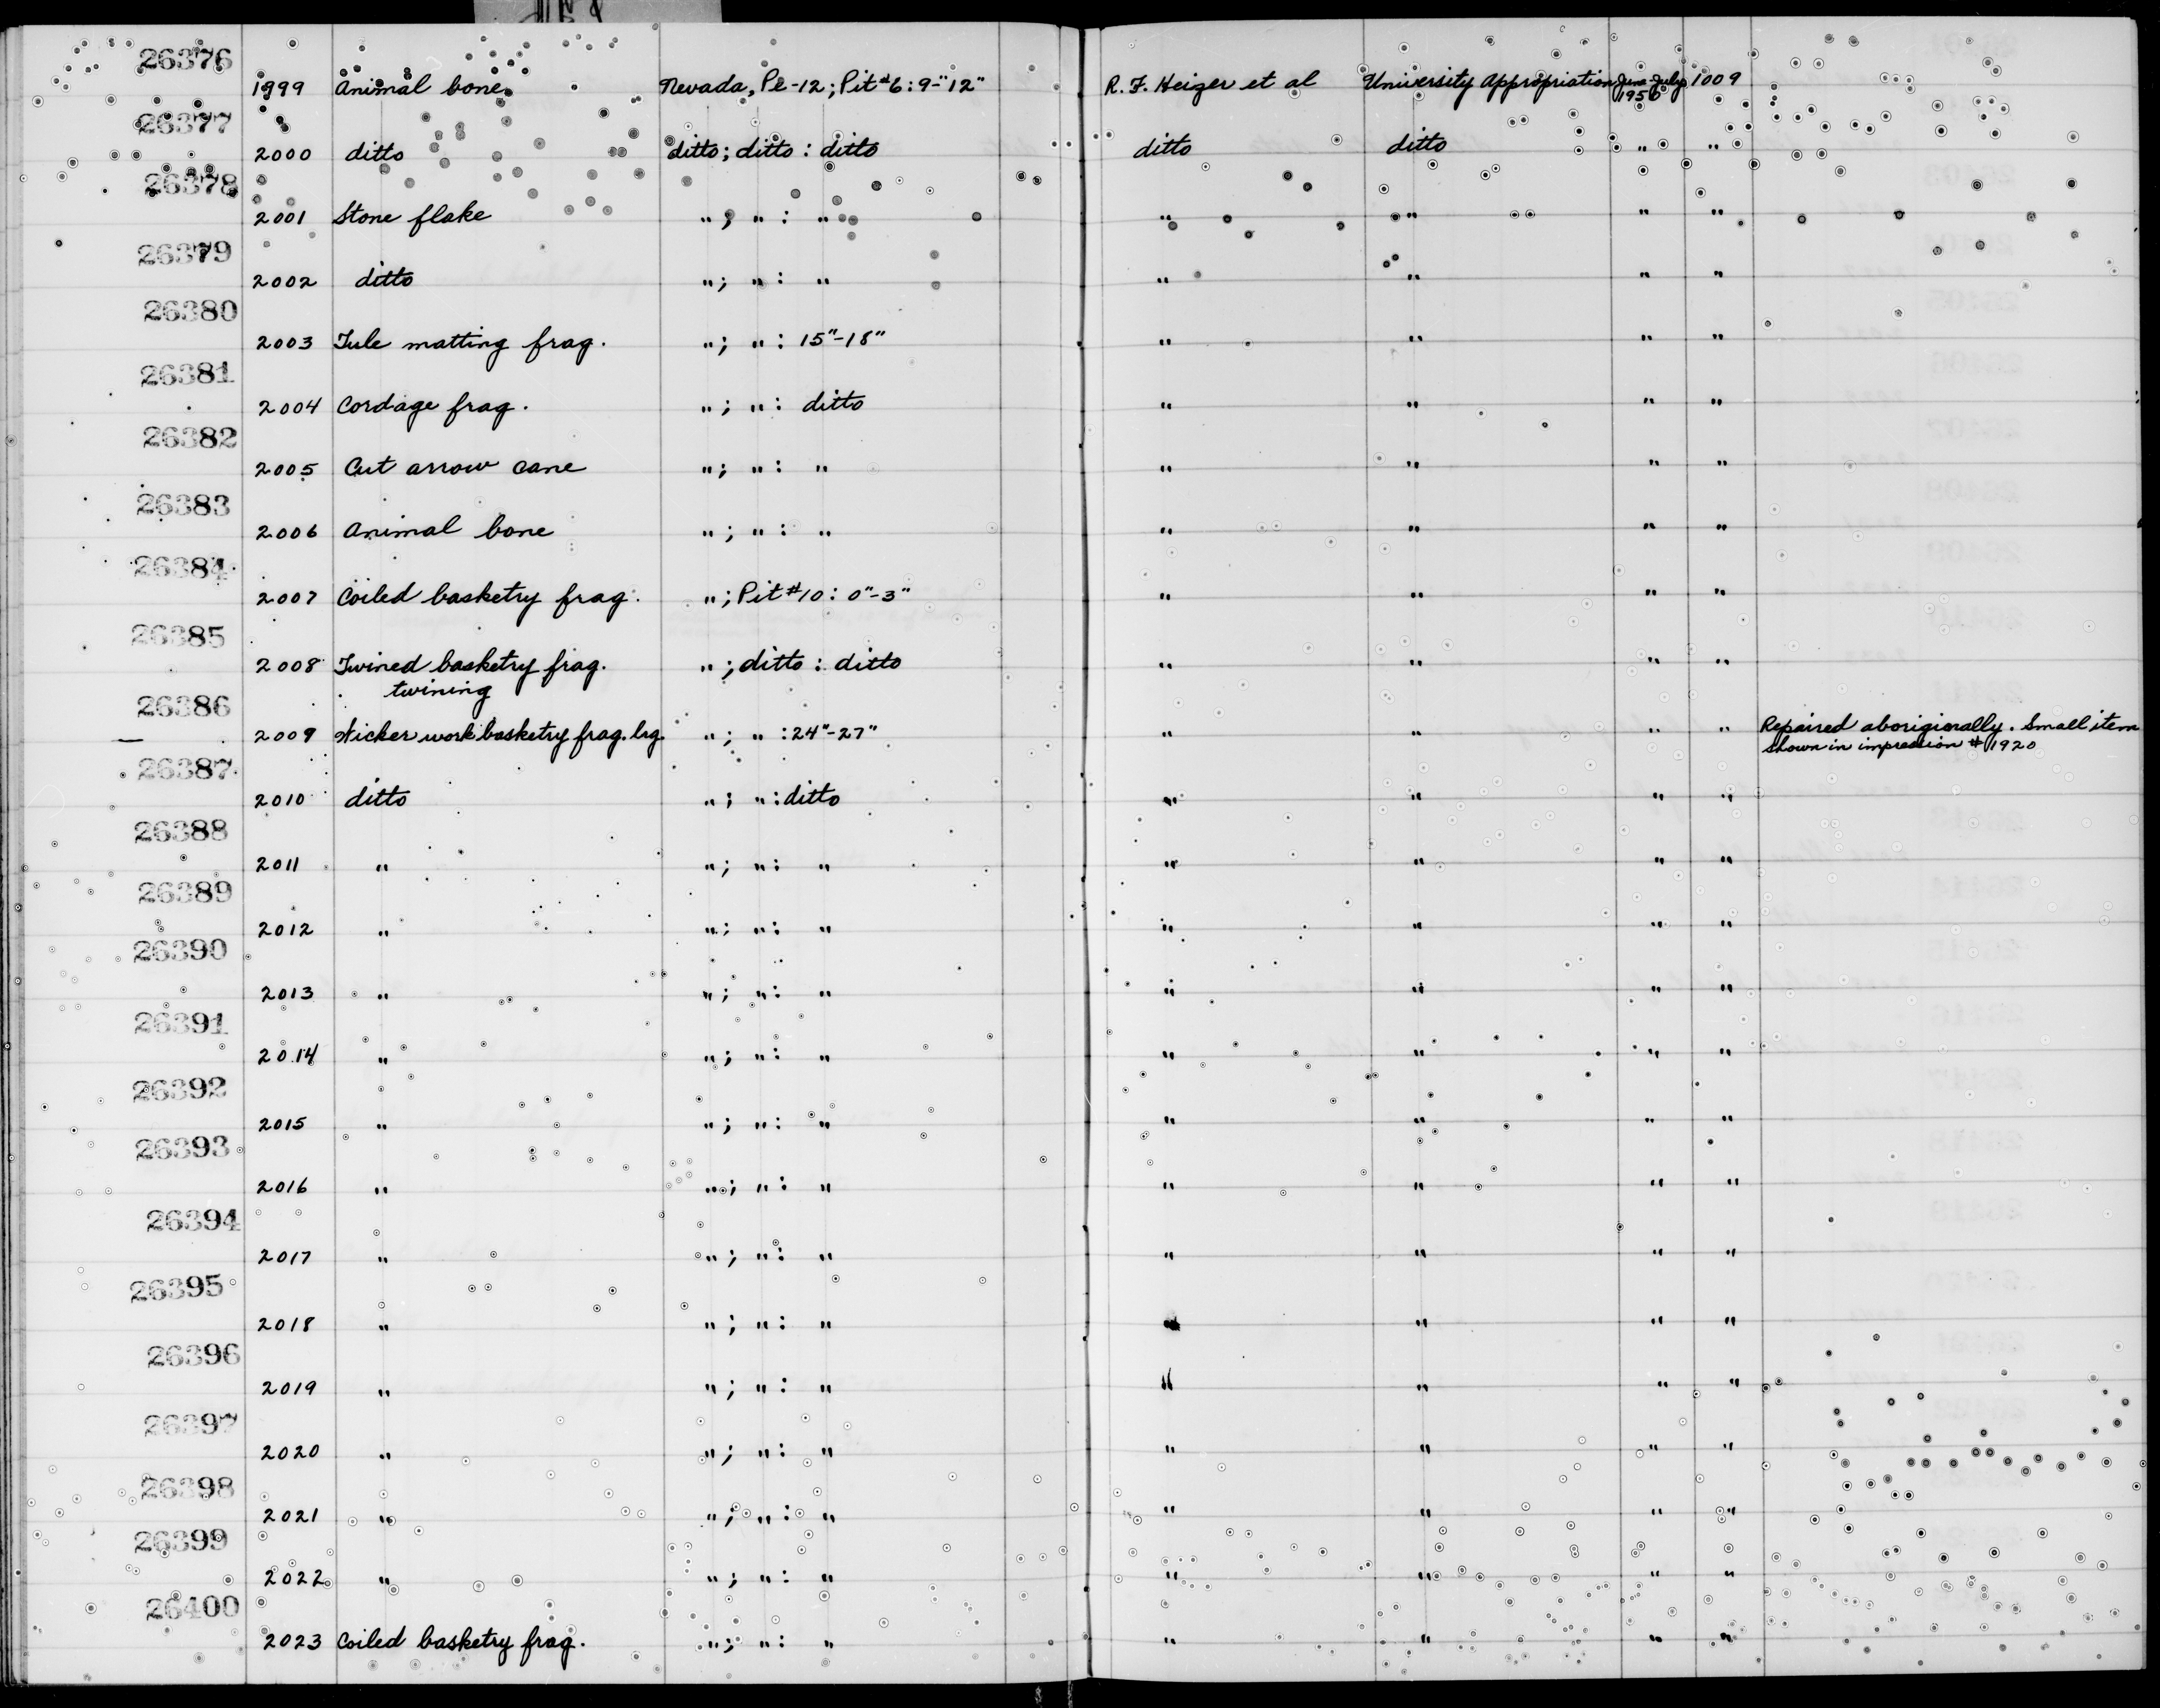 26376
1999 Animal bone Nevada, Pe-12; Pit #6: 9-"12" R. F. Heizer et al University Appropriation June-July 1950 1009
26377
2000 ditto ditto; ditto: ditto ditto ditto " "
26378
2001 Stone flake "; ": " " " " "
26379
2002 ditto "; ": " " " " "
26380
2003 Tule matting frag. "; ": 15"-18" " " " "
26381
2004 Cordage frag. "; ": ditto " " " "
26382
2005 Cut arrow cane "; ": " " " " "
26383
2006 Animal bone "; ": " " " " "
26384
2007 Coiled basketry frag. "; Pit #10: 0"-3" " " " "
26385
2008 Twined basketry frag. "; ditto: ditto " " " "
twining
26386
2009 Wicker work basketry frag. lrg. "; ": 24"-27" " " " " Repaired aboriginally. Small item
shown in impression #1920
26387
2010 ditto "; ": ditto " " " "
26388
2011 " "; ": " " " " "
26389
2012 " "; ": " " " " "
26390
2013 " "; ": " " " " "
26391
2014 " "; ": " " " " "
26392
2015 " "; ": " " " " "
26393
2016 " "; ": " " " " "
26394
2017 " "; ": " " " " "
26395
2018 " "; ": " " " " "
26396
2019 " "; ": " " " " "
26397
2020 " "; ": " " " " "
26398
2021 " "; ": " " " " "
26399
2022 " "; ": " " " " "
26400
2023 Coiled basketry frag. "; ": " " " " "